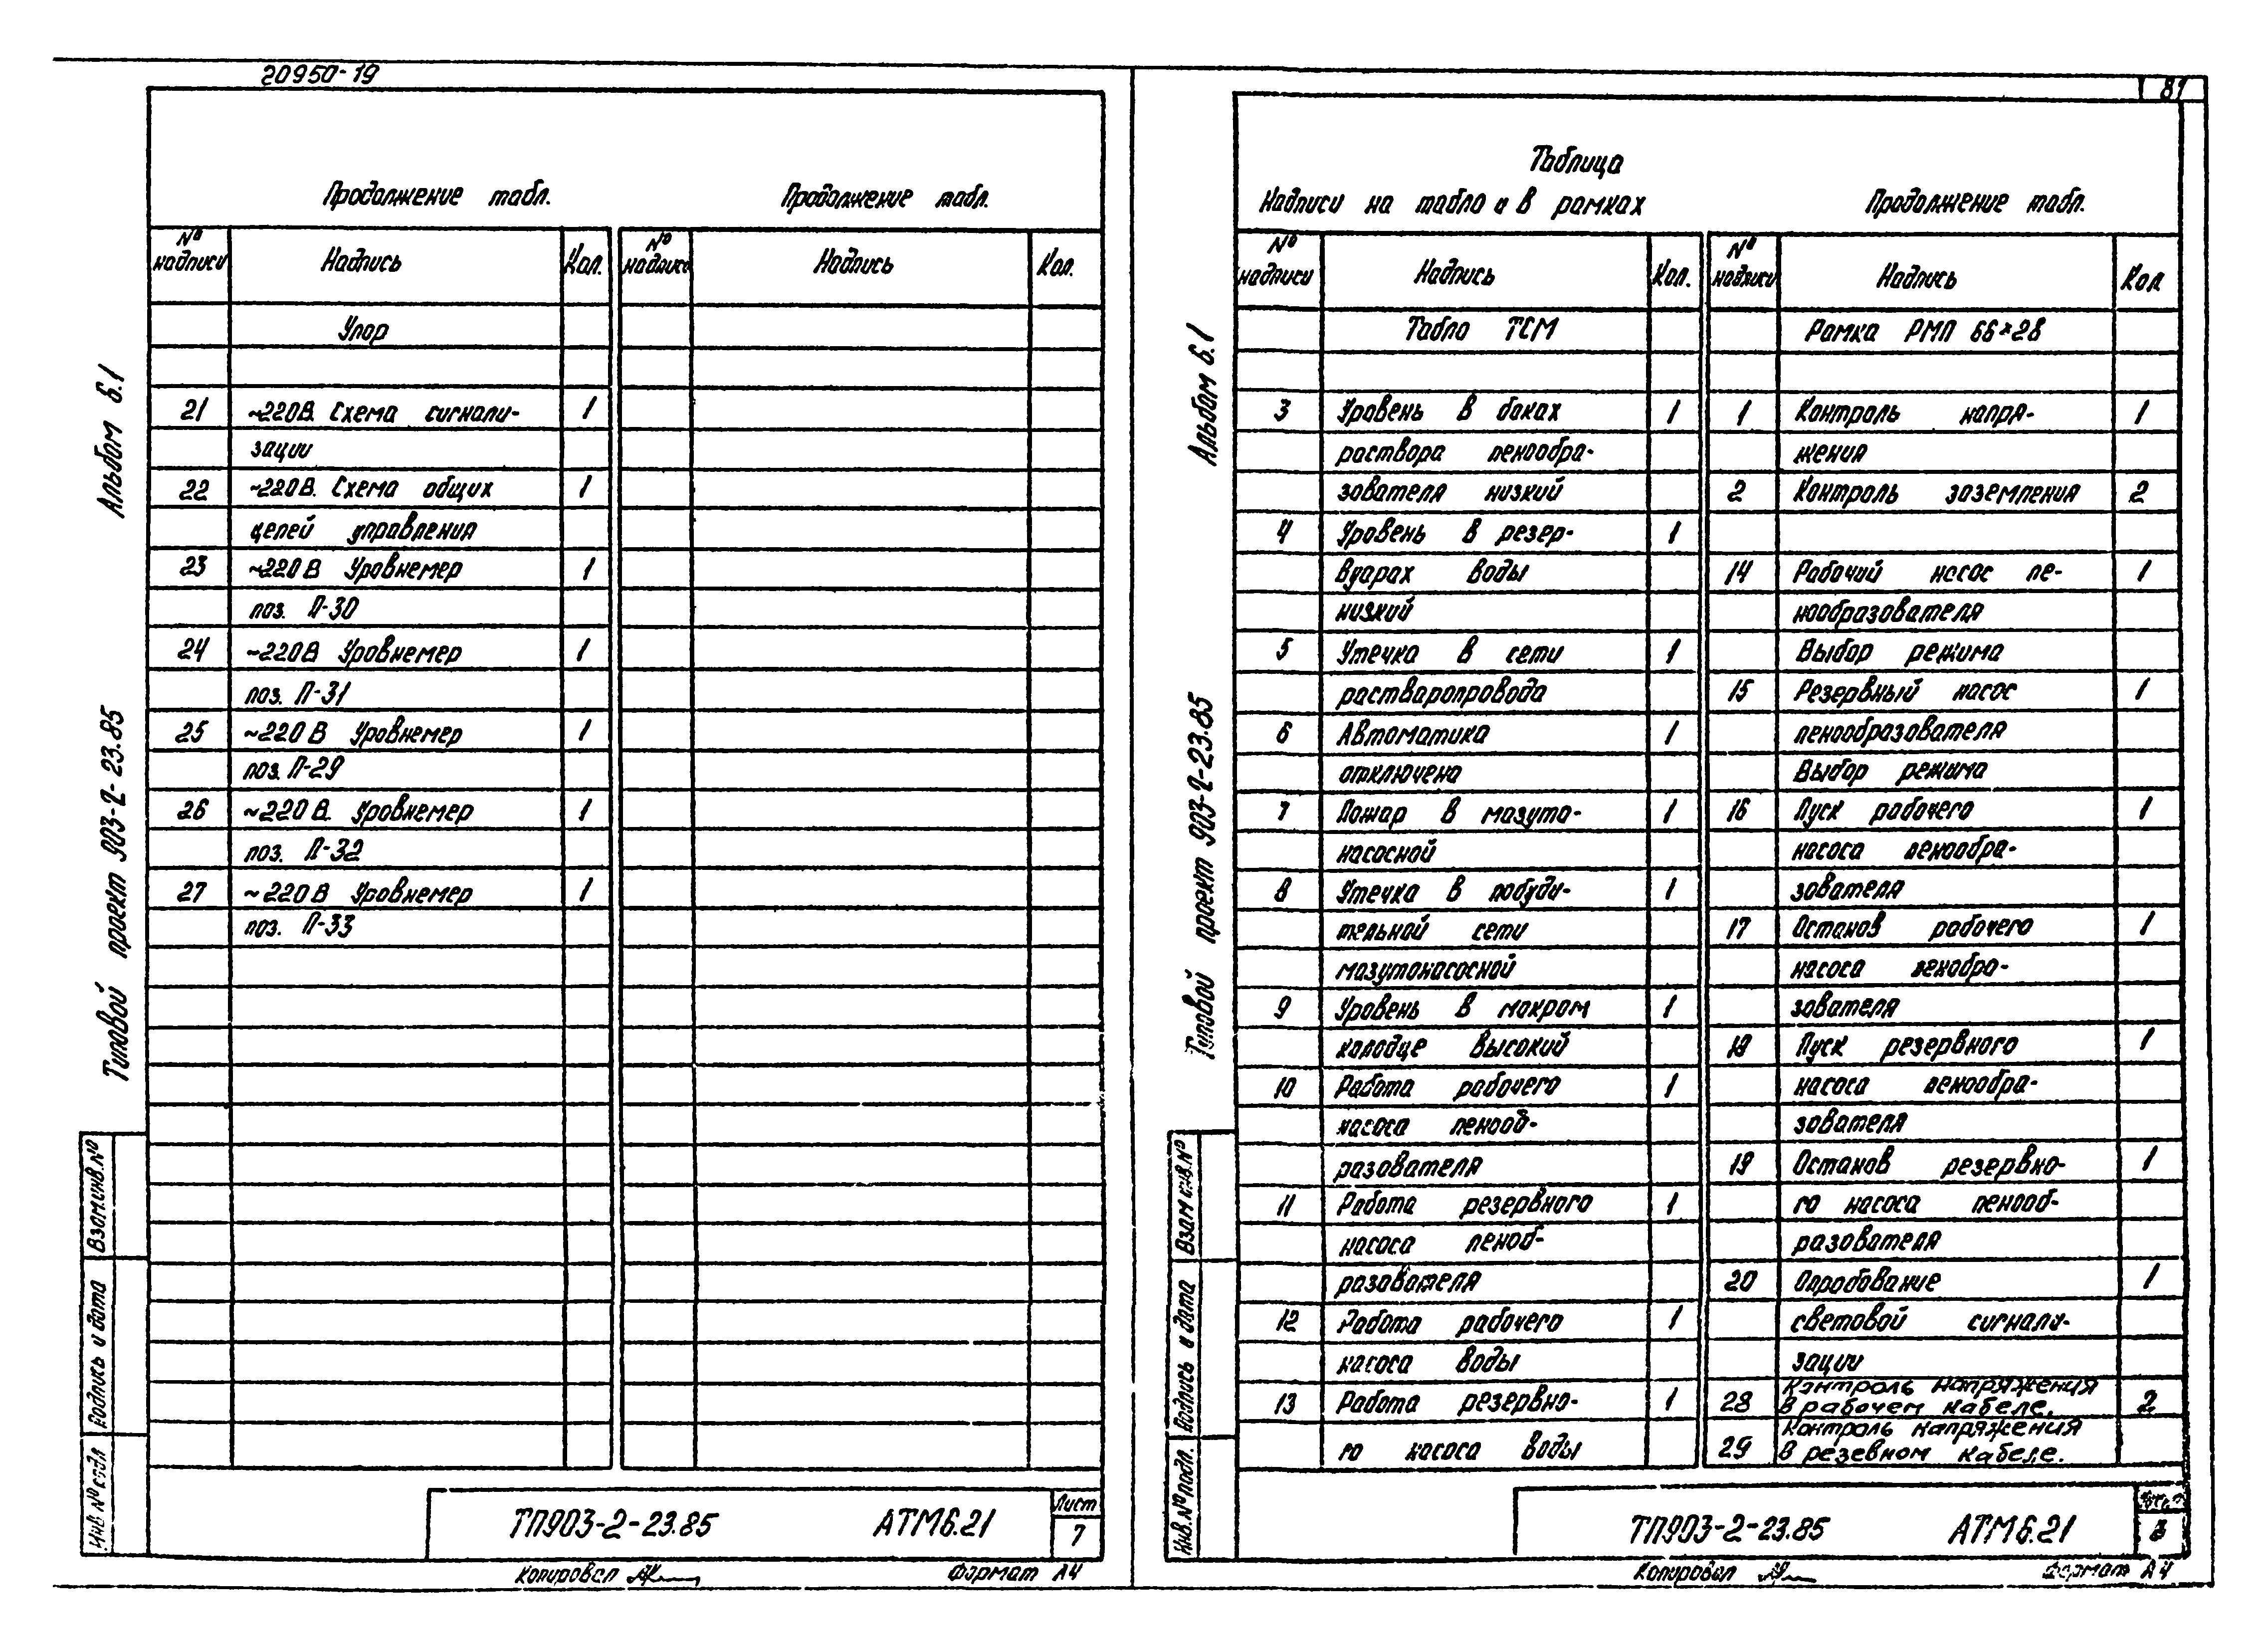 20950-19
Продолжение табл.
Продолжение табл.
№ надписи Надпись Кол. № надписи Надпись Кол.
Упор
21 ~220В. Схема сигнали- 1
зации
22 ~220В. Схема общих 1
цепей управления
23 ~220 В Уровнемер 1
поз. П-30
24 ~220 В Уровнемер 1
поз. П-31
25 ~220 В Уровнемер 1
поз. П-29
26 ~220 В. Уровнемер 1
поз. П-32
27 ~220 В Уровнемер 1
поз. П-33
Альбом 6.1
Типовой проект 903-2-23.85
Взам.инв.№
Подпись и дата
Инв.№ подл
ТП903-2-23.85 АТМ6.21
Лист
7
Копировал
Формат А4
81
Таблица
Надписи на табло и в рамках
Продолжение табл.
№ надписи Надпись Кол. № надписи Надпись Кол
Табло ТСМ
3 Уровень в баках 1
раствора пенообра-
зователя низкий
4 Уровень в резер- 1
вуарах воды
низкий
5 Утечка в сети 1
растваропровода
6 Автоматика 1
отключена
7 Пожар в мазуто- 1
насосной
8 Утечка в побуди- 1
тельной сети
мазутонасосной
9 Уровень в мокром 1
колодце высокий
10 Работа рабочего 1
насоса пенооб-
разователя
11 Работа резервного 1
насоса пеноб-
разователя
12 Работа рабочего 1
насоса воды
13 Работа резервно- 1
го насоса воды
Рамка РМП 66×28
1 Контроль напря- 1
жения
2 Контроль заземления 2
14 Рабочий насос пе- 1
нообразователя
Выбор режима
15 Резервный насос 1
пенообразователя
Выбор режима
16 Пуск рабочего 1
насоса пенообра-
зователя
17 Останов рабочего 1
насоса пенобра-
зователя
18 Пуск резервного 1
насоса пенообра-
зователя
19 Останов резервно- 1
го насоса пенооб-
разователя
20 Опробование 1
световой сигнали-
зации
28 Контроль напряжения
в рабочем кабеле. 2
29 Контроль напряжения
в резевном кабеле.
Альбом 6.1
Типовой проект 903-2-23.85
Взам инв.№
Подпись и дата
Инв.№ подл.
ТП903-2-23.85 АТМ6.21
Копировал
Формат А4